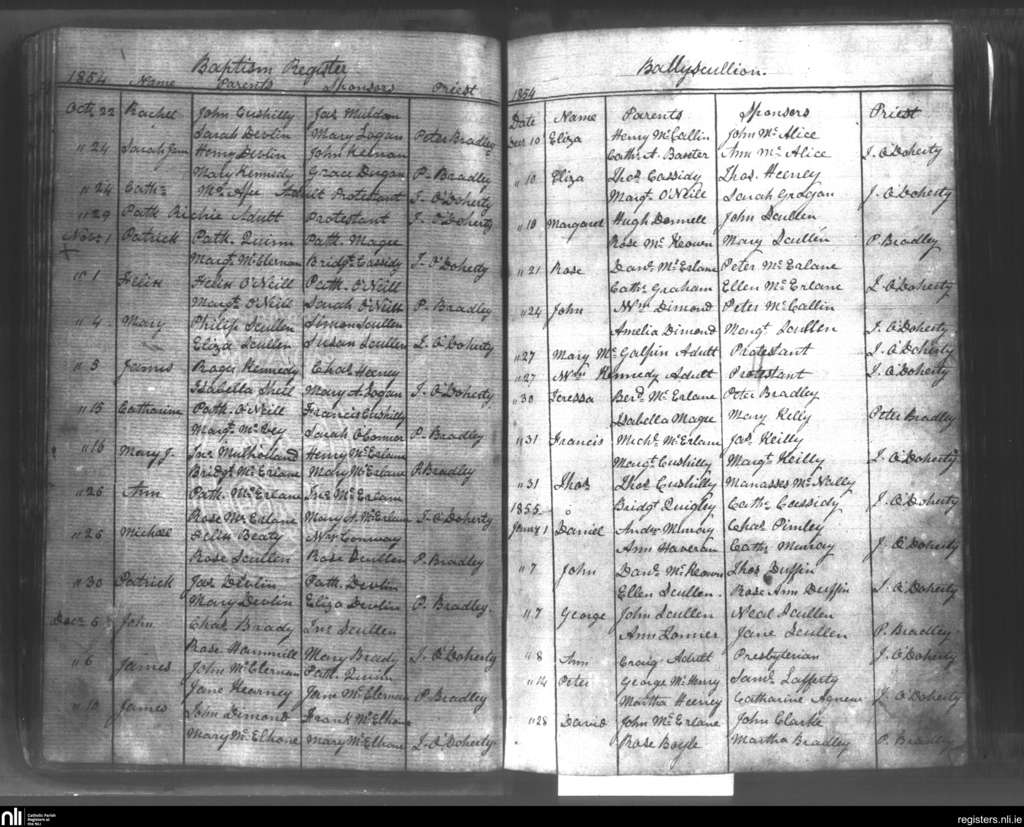 Baptism Register
1854 Name Parents Sponsors Priest
Oct. 22 Rachel John Cushilly Jas Muldoon
Sarah Devlin Mary Logan Peter Bradley
" 24 Sarah Jane Henry Devlin John Keenan
Mary Kennedy Grace Diegan P. Bradley
" 24 Cath: Mc Afee Adult Protestant J. O'Doherty
" 29 Path Richie Adult Protestant J. O'Doherty
Novr 1 Patrick Path. Quinn Path. Magee
Margt. McElernan Bridgt. Cassidy J. O'Doherty
" 1 Felix Felix O'Neill Path. O'Neill
Margt. O'Neill Sarah O'Neill P. Bradley
" 4 Mary Philip Scullen Simon Scullen
Eliza Scullen Susan Scullen J. O'Doherty
" 5 James Roger Kennedy Chas Heeney
Isabella Shiel Mary A Logan J. O'Doherty
" 15 Catharine Path. O'Neill Francis Cushilly
Margt. McVey Sarah O'Connor P. Bradley
" 16 Mary J. Jno Mulholland Henry McErlane
Bridgt. McErlane Mary McErlane P. Bradley
" 26 Ann Path. McErlane Jno McErlane
Rose McErlane Mary A. McErlane J. O'Doherty
" 26 Michael Felix Beaty Wm Conway
Rose Scullen Rose Scullen P. Bradley
" 30 Patrick Jas Devlin Path. Devlin
Mary Devlin Eliza Devlin P. Bradley
Decr 5 John Chas Brady Jno Scullen
Rose Hammill Mary Brady J. O'Doherty
" 6 James John McElernan Path. Quinn
Jane Kearney Jane McElernan P. Bradley
" 10 James John Dimond Frank McElhone
Mary McElhone Mary McElhone J. O'Doherty
Ballyscullion.
1854
Date Name Parents Sponsors Priest
Decr 10 Eliza Henry McCallin John McAlice
Cath. A. Baxter Ann McAlice J. O'Doherty
" 10 Eliza Thos. Cassidy Thos. Heeney
Margt. O'Neill Sarah Grogan J. O'Doherty
" 10 Margaret Hugh Donnell John Scullen
Rose McKeown Mary Scullen P. Bradley
" 21 Rose Danl. McErlane Peter McErlane
Cath. Graham Ellen McErlane J. O'Doherty
" 24 John Wm Dimond Peter McCallin
Amelia Dimond Margt. Scullen J. O'Doherty
" 27 Mary McGalpin Adult Protestant J. O'Doherty
" 27 Wm Kennedy Adult Protestant J. O'Doherty
" 30 Teressa Berd. McErlane Peter Bradley
Isabella Magee Mary Kelly Peter Bradley
" 31 Francis Michl. McErlane Jas. Keilly
Margt. Cushilly Margt. Keilly J. O'Doherty
" 31 Thos Thos Cushilly Manasses McNally
1855 Bridgt Quigley Cath: Cassidy J. O'Doherty
Jany 1 Daniel Andw Murray Chas Pimley
Ann Haveran Cath: Murray J. O'Doherty
" 7 John Danl. McKeown Thos Duffin
Ellen Scullen Rose Ann Duffin J. O'Doherty
" 7 George John Scullen Neal Scullen
Ann Jane Scullen P. Bradley
" 8 Ann Craig Adult Presbyterian J. O'Doherty
" 14 Peter George McHenry Saml. Lafferty
Martha Heeney Catharine Agnew J. O'Doherty
" 28 David John McErlane John Clarke
Rose Boyle Martha Bradley P. Bradley
nli Catholic Parish Registers at the NLI
registers.nli.ie